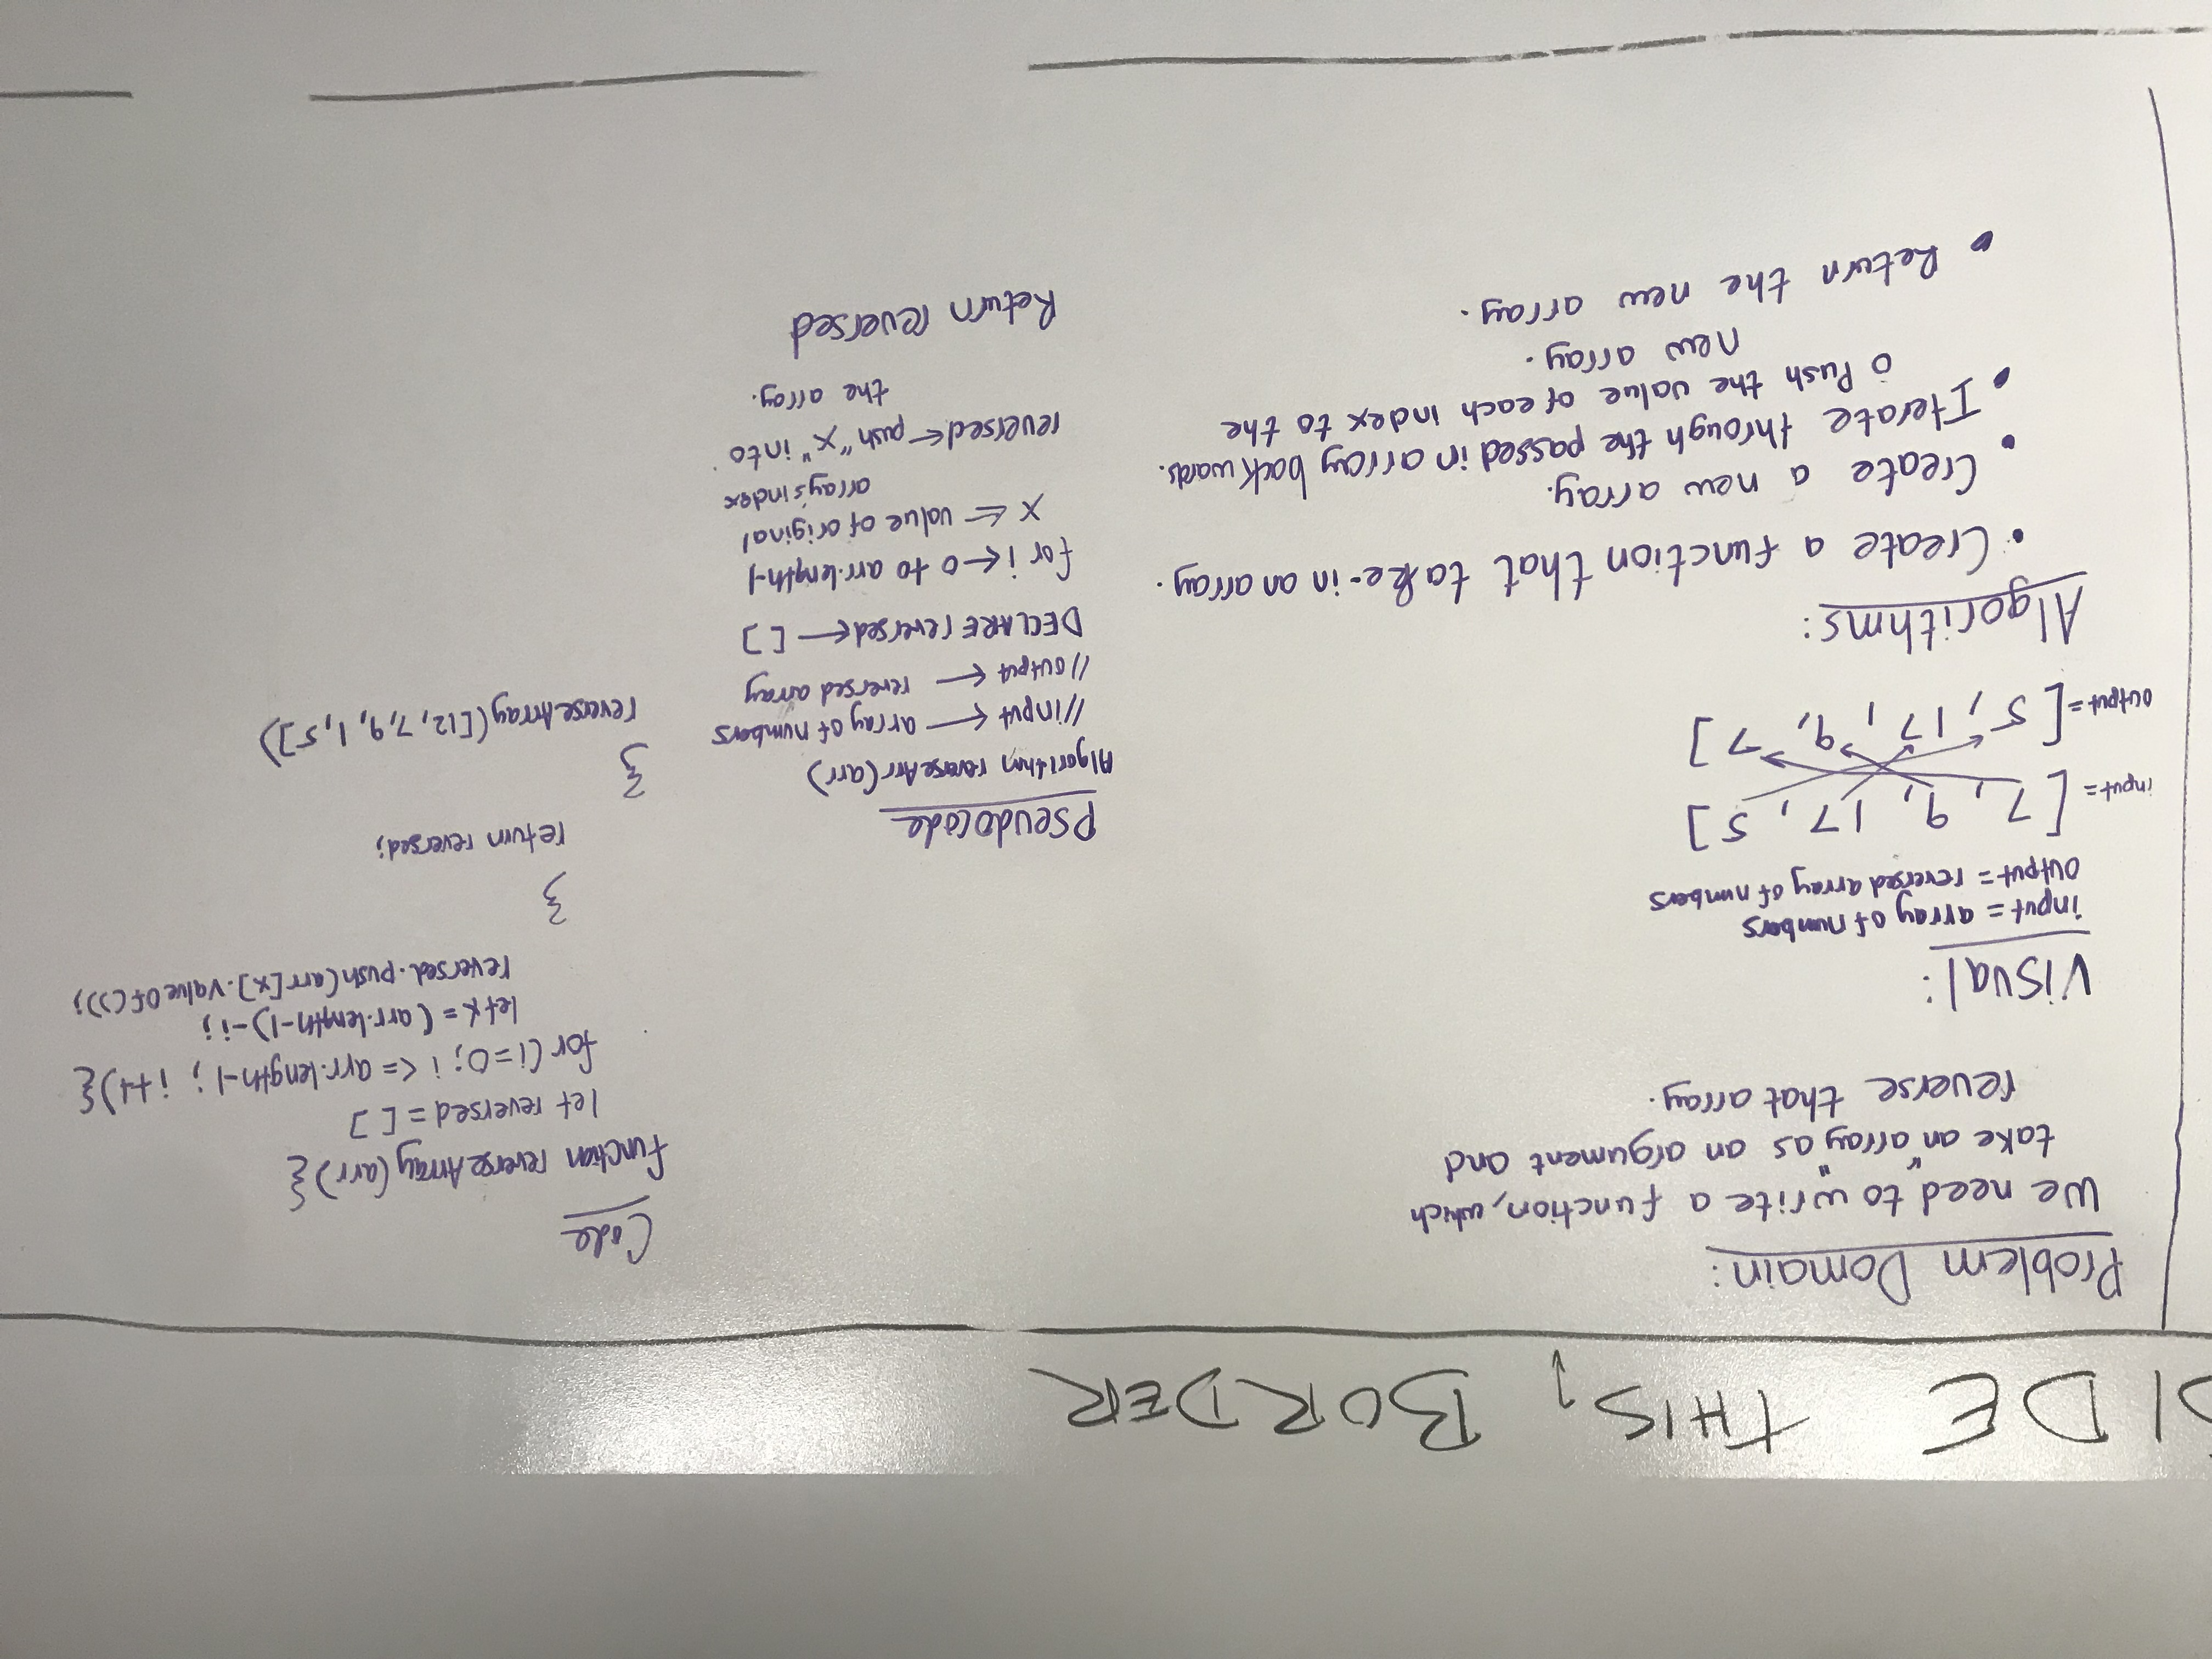 SIDE THIS↓ BORDER
Problem Domain:
We need to write a function, which
take an "array" as an argument and
reverse that array.
Visual:
input = array of numbers
output = reversed array of numbers
input = [7, 9, 17, 5]
output = [5, 17, 9, 7]
Algorithms:
• Create a function that take-in an array.
• Create a new array.
• Iterate through the passed in array backwards.
o Push the value of each index to the
new array.
• Return the new array.
Pseudocode
Algorithm reverseArr(arr)
//input ← array of numbers
//output ← reversed array
DECLARE reversed ← []
for i ← 0 to arr.length-1
x ← value of original
array's index
reversed ← push "x" into
the array.
Return reversed
Code
function reverseArray(arr){
let reversed = []
for(i=0; i <= arr.length-1; i++){
let x = (arr.length-1)-i;
reversed.push(arr[x].valueOf());
}
return reversed;
}
reverseArray([12, 7, 9, 1, 5])